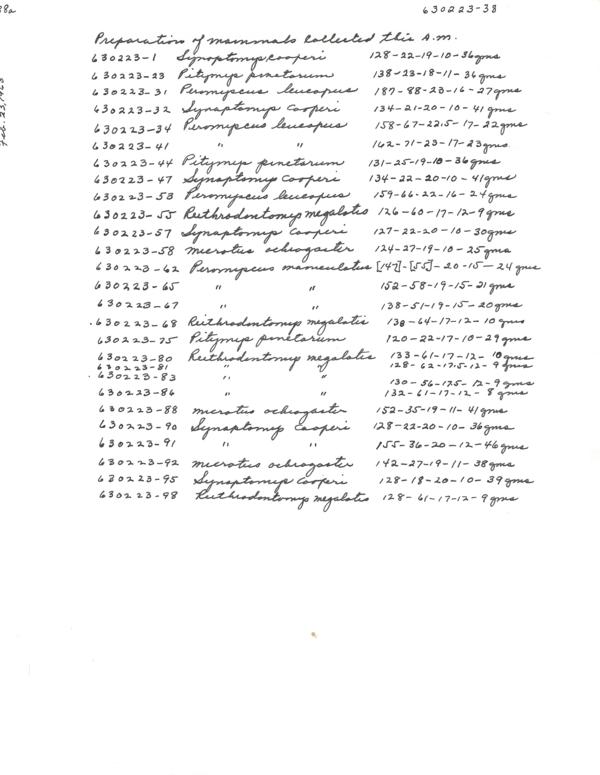 38a
630223-38
Feb. 23, 1963
Preparation of mammals Collected this A.M.
630223-1 Synaptomys cooperi 128-22-19-10-36gms
630223-23 Pitymys pinetorum 138-23-18-11-36gms
630223-31 Peromyscus leucopus 187-88-23-16-27gms
630223-32 Synaptomys Cooperi 134-21-20-10-41 gms
630223-34 Peromyscus leucopus 158-67-22.5-17-22gms
630223-41 " " 162-71-23-17-23gms
630223-44 Pitymys pinetorum 131-25-19-10-36gms
630223-47 Synaptomys Cooperi 134-22-20-10-41gms
630223-53 Peromyscus leucopus 159-66-22-16-24gms
630223-55 Reithrodontomys megalotis 126-60-17-12-9gms
630223-57 Synaptomys Cooperi 127-22-20-10-30gms
630223-58 microtus ochrogaster 124-27-19-10-25gms
630223-62 Peromyscus maniculatus [147]-[55]-20-15-24 gms
630223-65 " " 152-58-19-15-21gms
630223-67 " " 138-51-19-15-20gms
630223-68 Reithrodontomys megalotis 138-64-17-12-10gms
630223-75 Pitymys pinetorum 120-22-17-10-29gms
630223-80 Reithrodontomys megalotis 133-61-17-12-10gms
630223-81 " " 128-62-17.5-12-9gms
630223-83 " 130-56-17.5-12-9gms
630223-86 " " 132-61-17-12-8gms
630223-88 microtus ochrogaster 152-35-19-11-41gms
630223-90 Synaptomys Cooperi 128-22-20-10-36gms
630223-91 " " 155-36-20-12-46gms
630223-92 microtus ochrogaster 142-27-19-11-38gms
630223-95 Synaptomys Cooperi 128-18-20-10-39gms
630223-98 Reithrodontomys megalotis 128-61-17-12-9gms